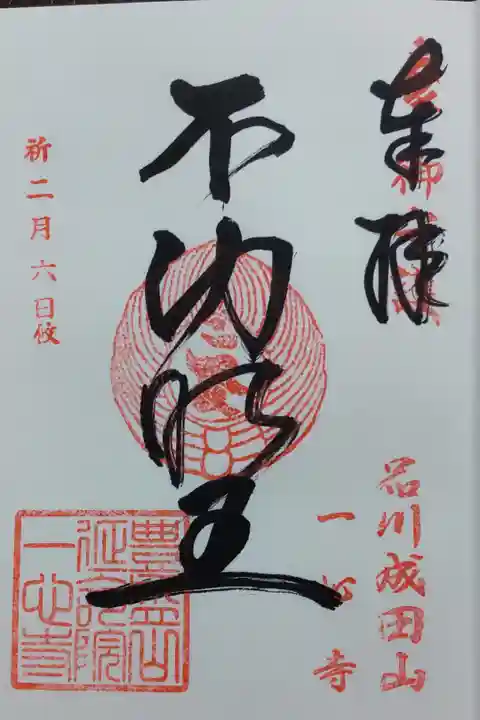 奉拝
品川成田山
一心寺
不動明王
豊盛山
延命院
一心寺
祈二月六日佼